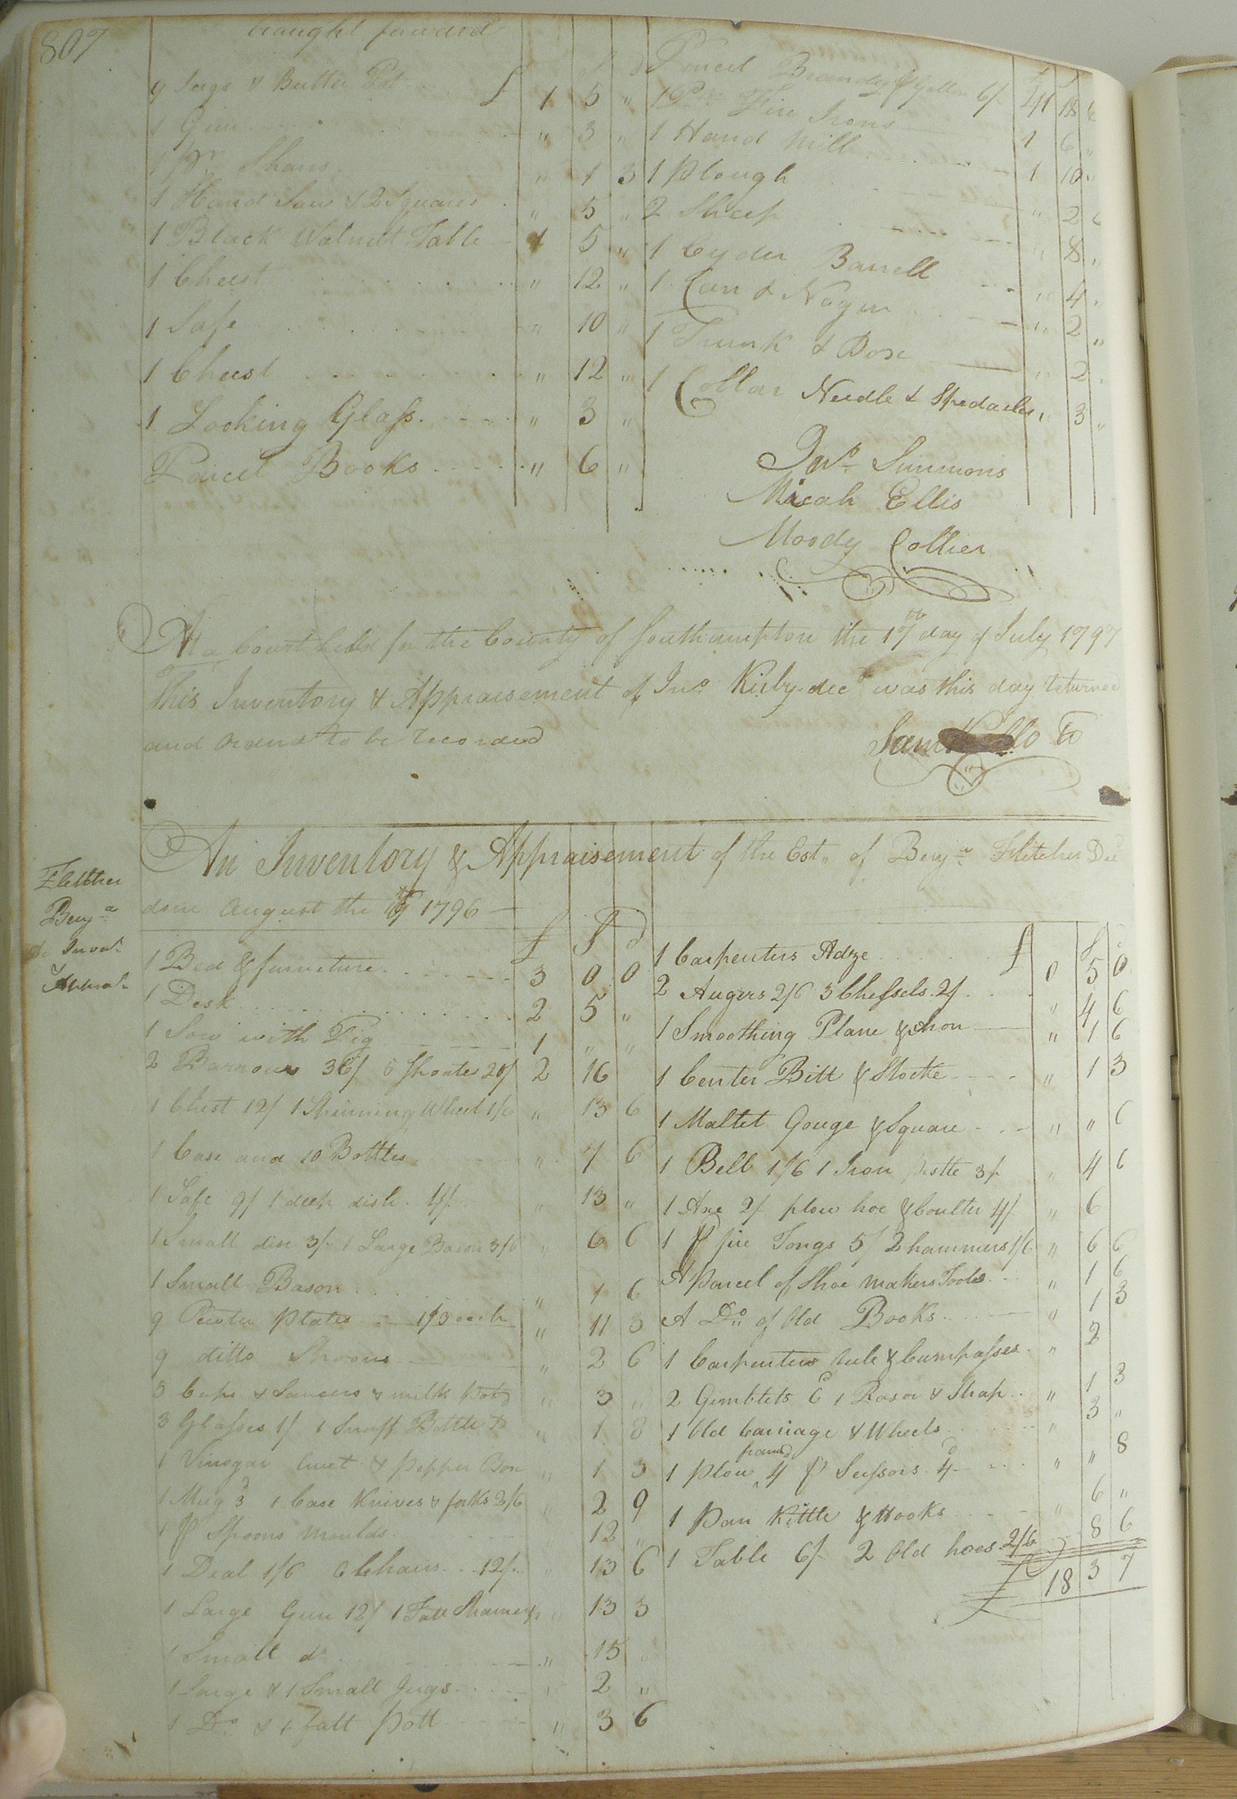 807
brought forward
9 Jugs & Butter Pot £ 1 5 "
1 Gun " 3 "
1 Pr. Shears " 1 3
1 Hand Saw & 2 Squares " 5 "
1 Black Walnut Table 1 5 "
1 Chest " 12 "
1 Safe " 10 "
1 Chest " 12 "
1 Looking Glass " 3 "
Parcel Books " 6 "
Parcel Brandy gallon 6/ 41 18
1 Pr. Fire Irons 1 6 "
1 Hand Mill 1 10 "
1 Plough " 2
2 Sheep " 8 "
1 Cyder Barrell " 4 "
1 Can & Nogin " 2 "
1 Trunk & Box " 2
1 Collar Needle & Spectacles " 3 "
Jno. Simmons
Micah Ellis
Moody Collier
At a Court held for the County of Southampton the 17th day of July 1797
This Inventory & Appraisement of Jno. Kirby decd was this day returned
and ordered to be recorded
Sam Kello
An Inventory & Appraisement of the Est. of Benja Fletcher Decd
done August the 1796
Fletcher
Benja
Invt.
£ S d
1 Bed & furniture 3 0 0
1 Desk 2 5 "
1 Sow with Pig 1 " "
2 Barrows 36/ 6 Shoates 20/ 2 16
1 Chest 12/ 1 Spinning Wheel 1/6 " 13 6
1 Case and 10 Bottles " 7 6
1 Safe 9/ 1 deep dish 4/ " 13 "
1 Small dish 3/ 1 Large Bason 3/6 " 6 6
1 Small Bason " 1 6
9 Pewter Plates 1/3 each " 11 3
9 ditto Spoons " 2 6
3 Cups & Saucers & milk Pot " 3 "
3 Glasses 1/ 1 Snuff Bottle " 1 8
1 Vinegar Cruet & Pepper Box " 1 3
1 Mug 3d 1 Case Knives & forks 2/6 " 2 9
1 pr Spoons moulds 12 "
1 Deal 1/6 6 Chairs 12/ " 13 6
1 Large Gun 12/ 1 Fatt " 13 3
1 Small do " 15
1 Large & 1 Small Jugs " 2 "
1 Do & 1 fatt Pott " 3 6
£ S
1 Carpenters Adze £ 0 5 0
2 Augers 2/6 3 Chessels 2/ " 4 6
1 Smoothing Plane & Iron " 1 6
1 Center Bitt & Stocke " 1 3
1 Mallet Gouge & Square " " 6
1 Bell 1/6 1 Iron Pestle 3/ " 4 6
1 Axe 2/ plow hoe & Coulter 4/ " 6
1 pr fire Tongs 5/ 2 hammers 1/6 " 6 6
A parcel of Shoe makers Tools " 1 6
A Do of Old Books " 1 3
1 Carpenters Rule & Cumpasses " 2
2 Gimblets 6d 1 Rasor & Strap " 1 3
1 Old Carriage & Wheels " 3 "
1 Plow frame 4 pr Scissors 4d " " 8
1 Pan Kittle & Hooks " 6 "
1 Table 6/ 2 Old hoes 2/6 8 6
£ 18 3 7